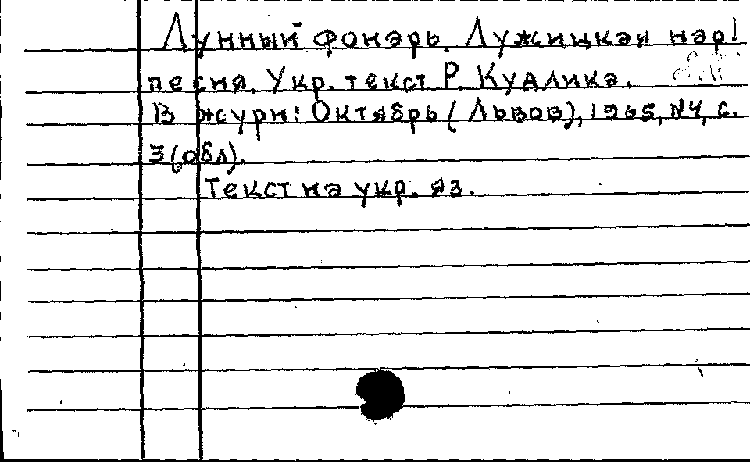 Лунный фонарь. Лужицкая нар.
песня. Укр. текст Р. Кудлика.
В журн: Октябрь (Львов), 1965, №4, с.
3 (обл).
Текст на укр. яз.